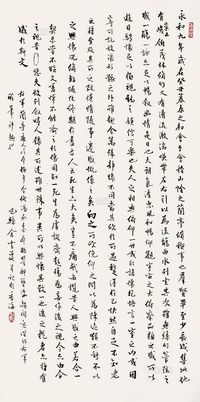 永和九年歲在癸丑暮春之初會于會稽山陰之蘭亭修稧事也群賢畢至少長咸集此地
有崇山峻領茂林修竹又有清流激湍映帶左右引以為流觴曲水列坐其次雖無絲竹管弦之
盛一觴一詠亦足以暢敘幽情是日也天朗氣清惠風和暢仰觀宇宙之大俯察品類之盛所以
遊目騁懷足以極視聽之娛信可樂也夫人之相與俯仰一世或取諸懷抱悟言一室之內或因
寄所託放浪形骸之外雖趣舍萬殊靜躁不同當其欣於所遇暫得於己快然自足不知老
之將至及其所之既惓情隨事遷感慨係之矣向之所欣俛仰之間以為陳迹猶不能不以
之興懷況修短隨化終期於盡古人云死生亦大矣豈不痛哉每攬昔人興感之由若合一
契未嘗不臨文嗟悼不能喻之於懷固知一死生為虛誕齊彭殤為妄作後之視今亦由今
之視昔悲夫故列敘時人錄其所述雖世殊事異所以興懷其致一也後之攬者亦將有
感於斯文